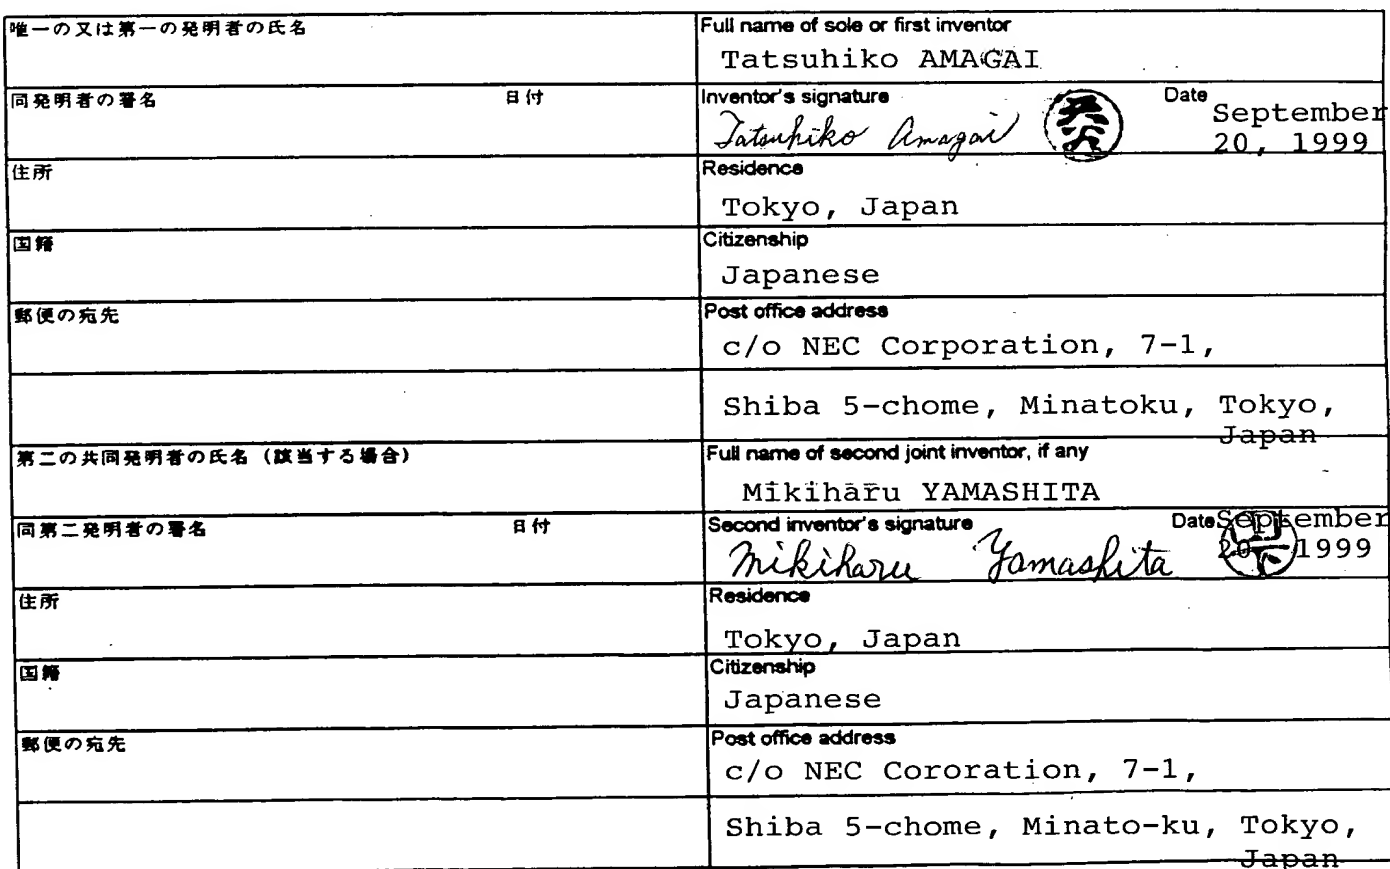 唯一の又は第一の発明者の氏名
Full name of sole or first inventor
Tatsuhiko AMAGAI
同発明者の署名 日付
Inventor's signature Date
Tatsuhiko Amagai
September
20, 1999
住所
Residence
Tokyo, Japan
国籍
Citizenship
Japanese
郵便の宛先
Post office address
c/o NEC Corporation, 7-1,
Shiba 5-chome, Minatoku, Tokyo,
Japan
第二の共同発明者の氏名（該当する場合）
Full name of second joint inventor, if any
Mikiharu YAMASHITA
同第二発明者の署名 日付
Second inventor's signature Date September
Mikiharu Yamashita
20, 1999
山下
住所
Residence
Tokyo, Japan
国籍
Citizenship
Japanese
郵便の宛先
Post office address
c/o NEC Cororation, 7-1,
Shiba 5-chome, Minato-ku, Tokyo,
Japan